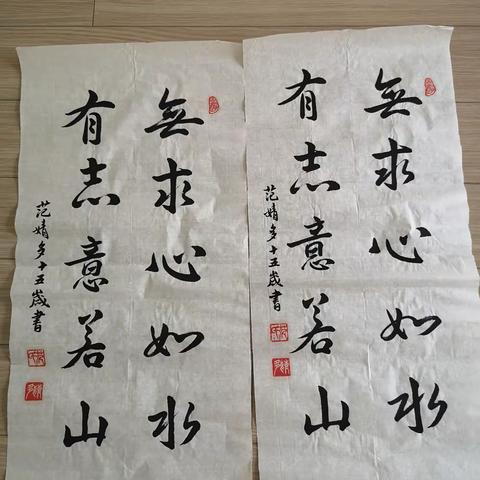 無求心如水
有志意若山
范婧多十五歲書
無求心如水
有志意若山
范婧多十五歲書